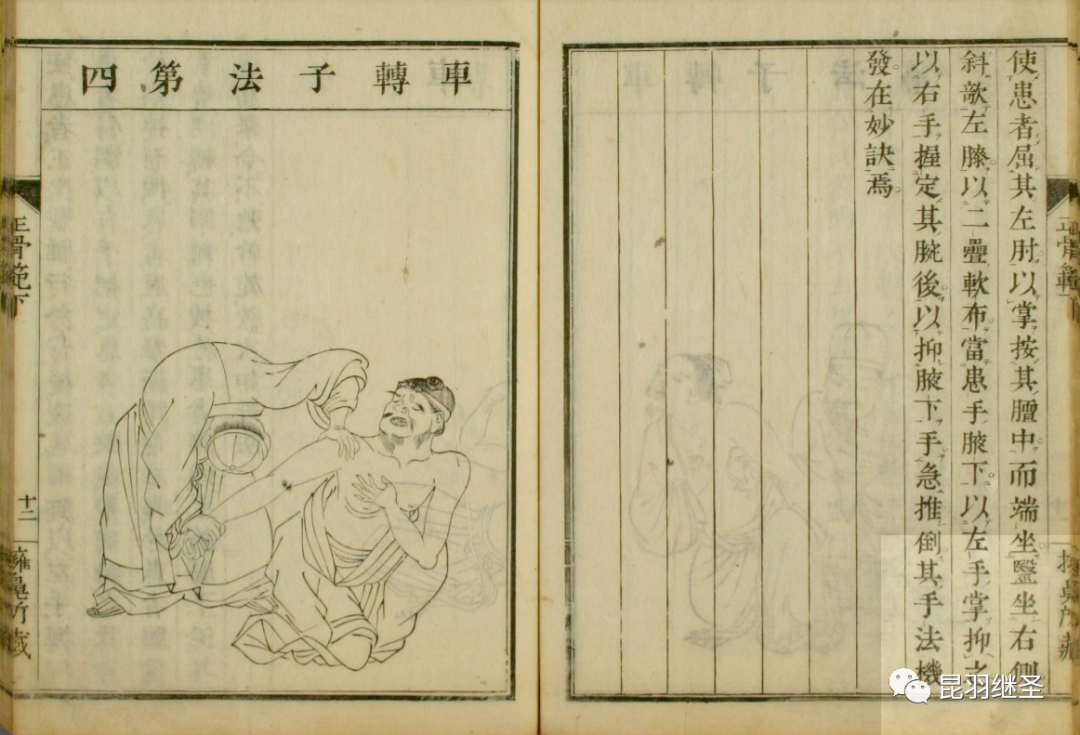 使患者屈其左肘以掌按其膻中而端坐醫坐右側
斜敧左膝以二疊軟布當患手腋下以左手掌抑之
以右手握定其腕後以抑腋下手急推倒其手法機
發在妙訣焉
正骨範下
車轉子法第四
正骨範下
十二
所藏
昆羽继圣